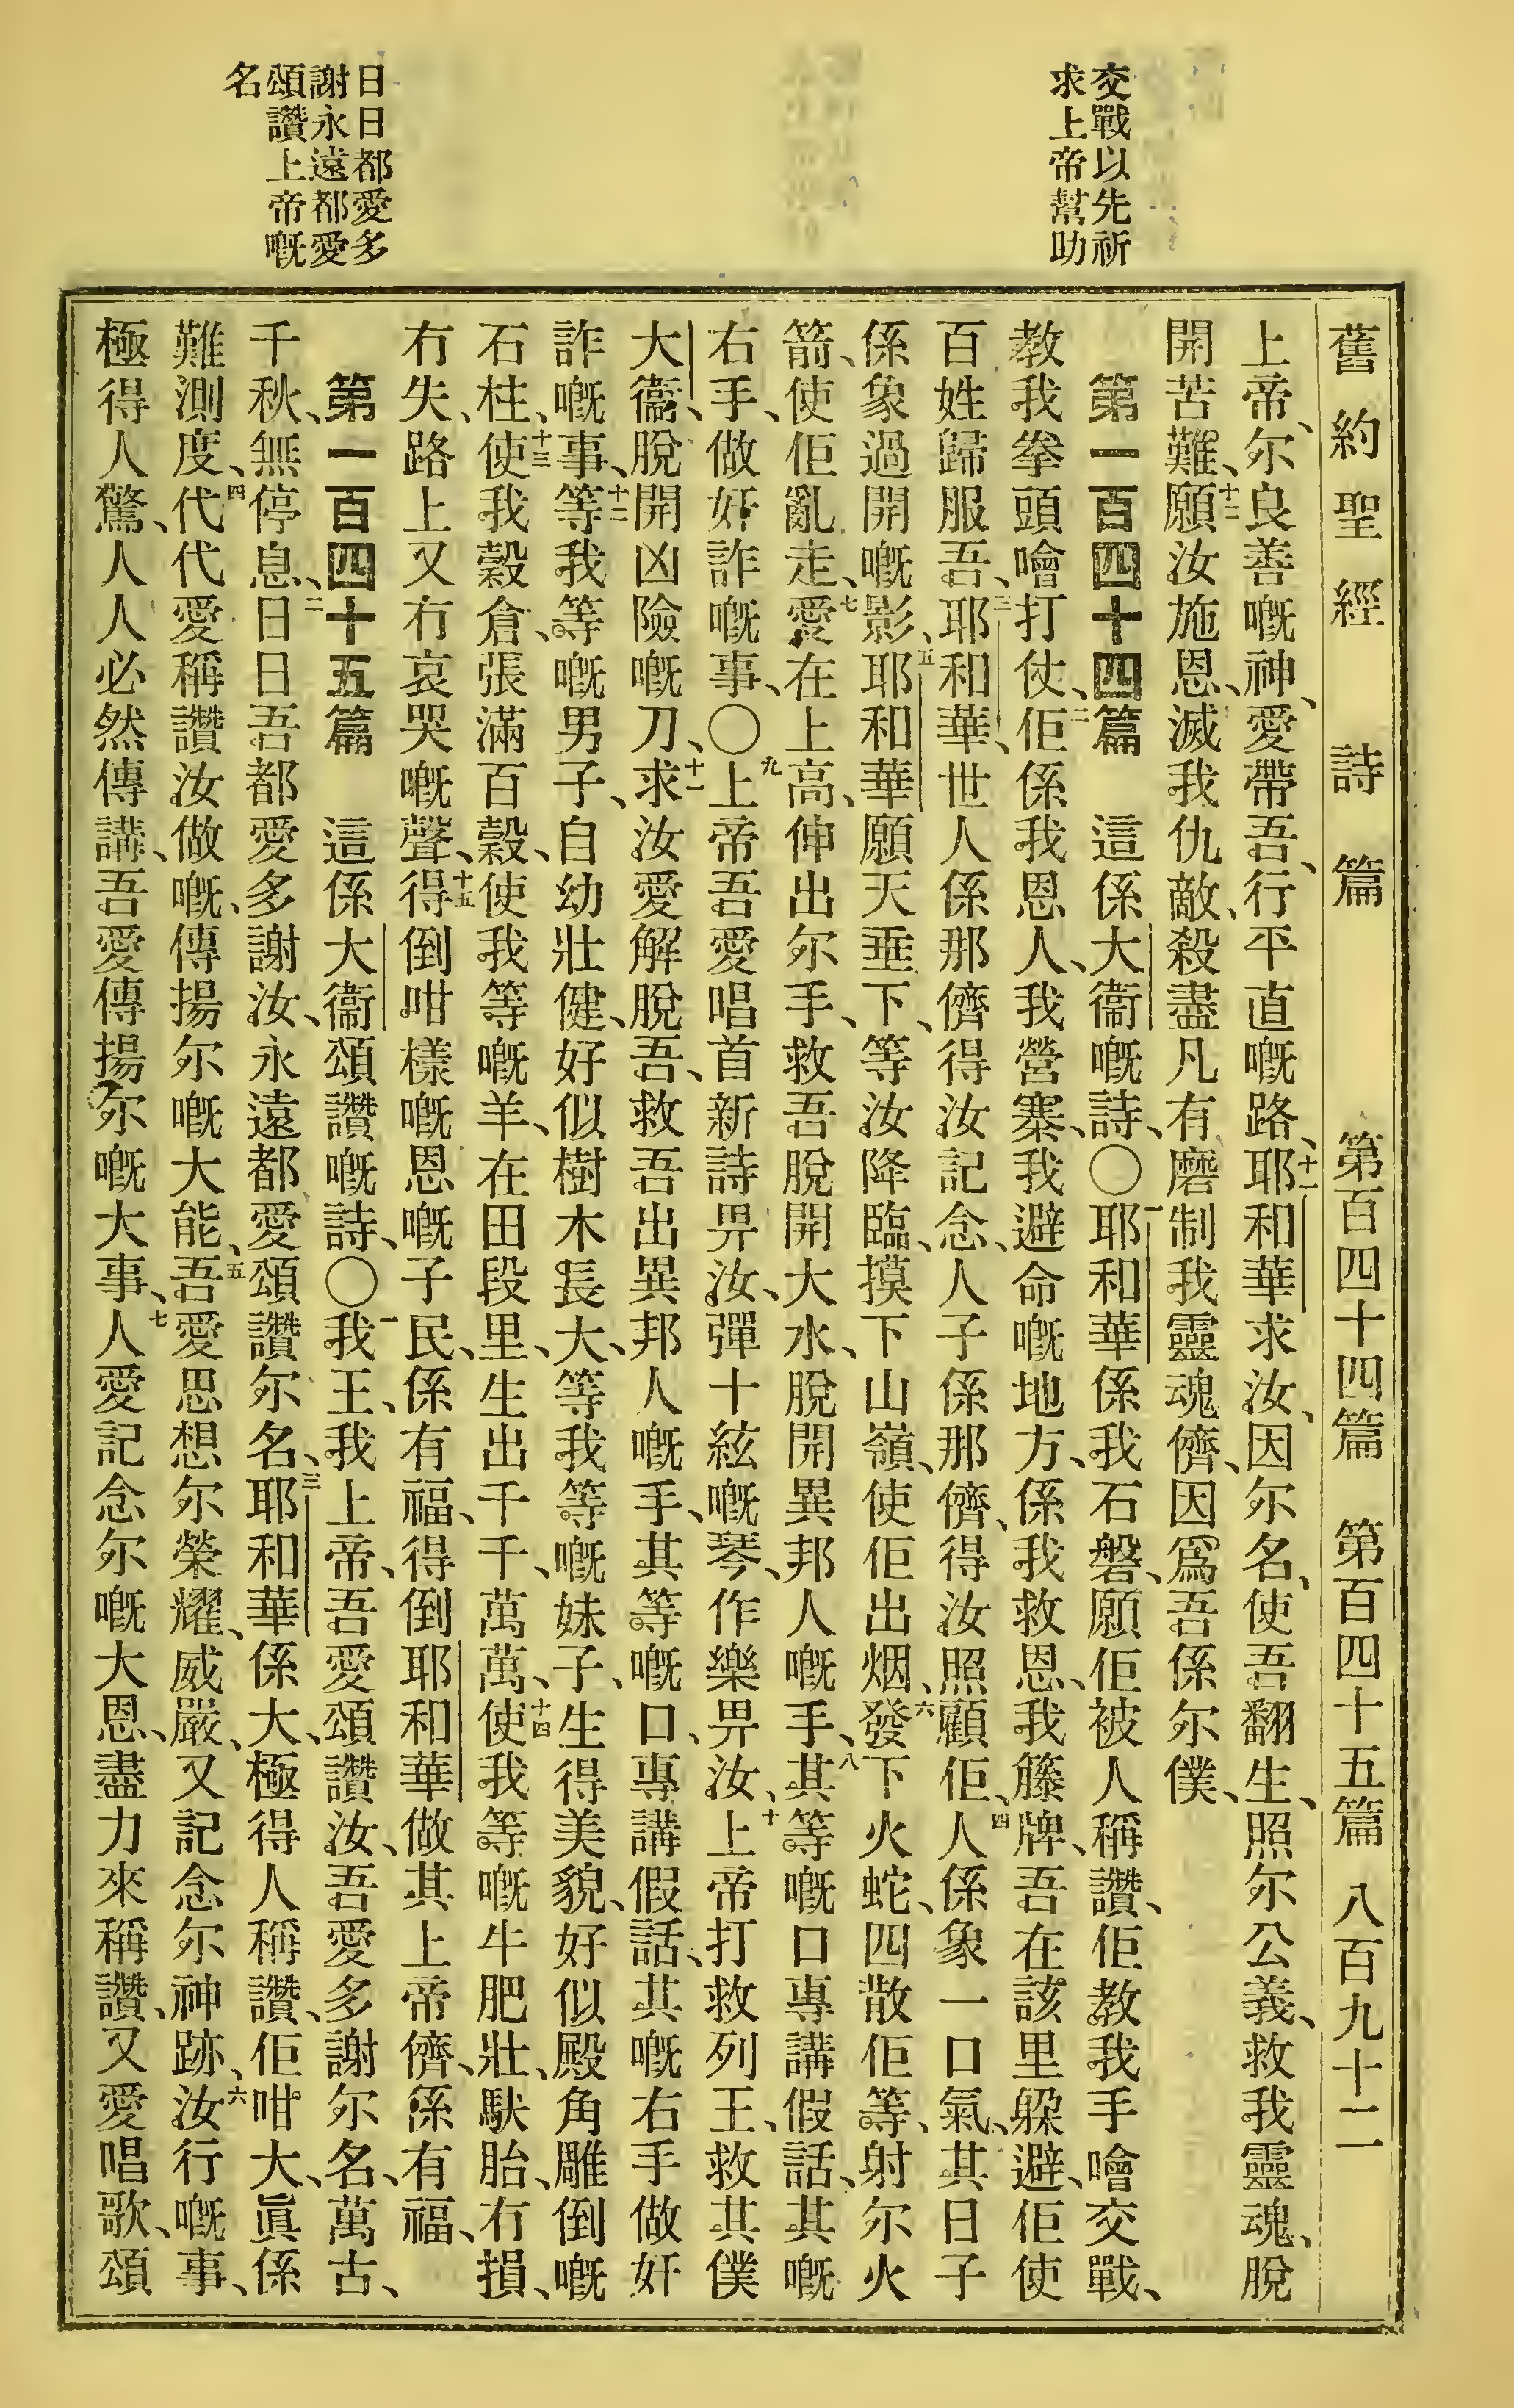 交戰以先祈
求上帝幫助
日日都愛多
謝永遠都愛
頌讚上帝嘅
名
舊約聖經 詩篇 第百四十四篇 第百四十五篇 八百九十二
上帝、尔良善嘅神、愛帶吾、行平直嘅路、十一耶和華求汝、因尔名、使吾翻生、照尔公義、救我靈魂、脫
開苦難、十二願汝施恩、滅我仇敵、殺盡凡有磨制我靈魂儕、因爲吾係尔僕、
第一百四十四篇 這係大衞嘅詩、〇一耶和華係我石磐、願佢被人稱讚、佢教我手噲交戰、
教我拳頭噲打仗、二佢係我恩人、我營寨、我避命嘅地方、係我救恩、我籐牌、吾在該里躱避、佢使
百姓歸服吾、三耶和華、世人係那儕得汝記念、人子係那儕、得汝照顧佢、四人係象一口氣、其日子
係象過開嘅影、五耶和華願天垂下、等汝降臨、摸下山嶺、使佢出烟、六發下火蛇、四散佢等、射尔火
箭、使佢亂走、七愛在上高、伸出尔手、救吾脫開大水、脫開異邦人嘅手、八其等嘅口專講假話、其嘅
右手、做奸詐嘅事、〇九上帝吾愛唱首新詩畀汝、彈十絃嘅琴、作樂畀汝、十上帝打救列王、救其僕
大衞、脫開凶險嘅刀、十一求汝愛解脫吾、救吾出異邦人嘅手、其等嘅口、專講假話、其嘅右手做奸
詐嘅事、十二等我等嘅男子、自幼壯健、好似樹木長大、等我等嘅妹子、生得美貌、好似殿角雕倒嘅
石柱、十三使我穀倉、張滿百穀、使我等嘅羊、在田段里、生出千千、萬萬、十四使我等嘅牛肥壯、駃胎、冇損、
冇失、路上又冇哀哭嘅聲、十五得倒咁樣嘅恩嘅子民、係有福、得倒耶和華做其上帝儕、係有福、
第一百四十五篇 這係大衞頌讚嘅詩、〇一我王、我上帝、吾愛頌讚汝、吾愛多謝尔名、萬古、
千秋、無停息、二日日吾都愛多謝汝、永遠都愛頌讚尔名、三耶和華係大、極得人稱讚、佢咁大、眞係
難測度、四代代愛稱讚汝做嘅、傳揚尔嘅大能、五吾愛思想尔榮耀、威嚴、又記念尔神跡、六汝行嘅事、
極得人驚、人人必然傳講、吾愛傳揚尔嘅大事、七人愛記念尔嘅大恩、盡力來稱讚、又愛唱歌、頌